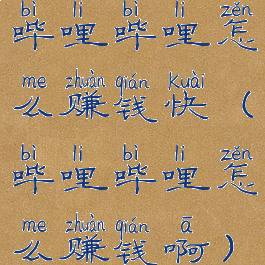 bì li bì li zěn
哔哩哔哩怎
me zhuàn qián kuài
么赚钱快（
bì li bì li zěn
哔哩哔哩怎
me zhuàn qián ā
么赚钱啊）